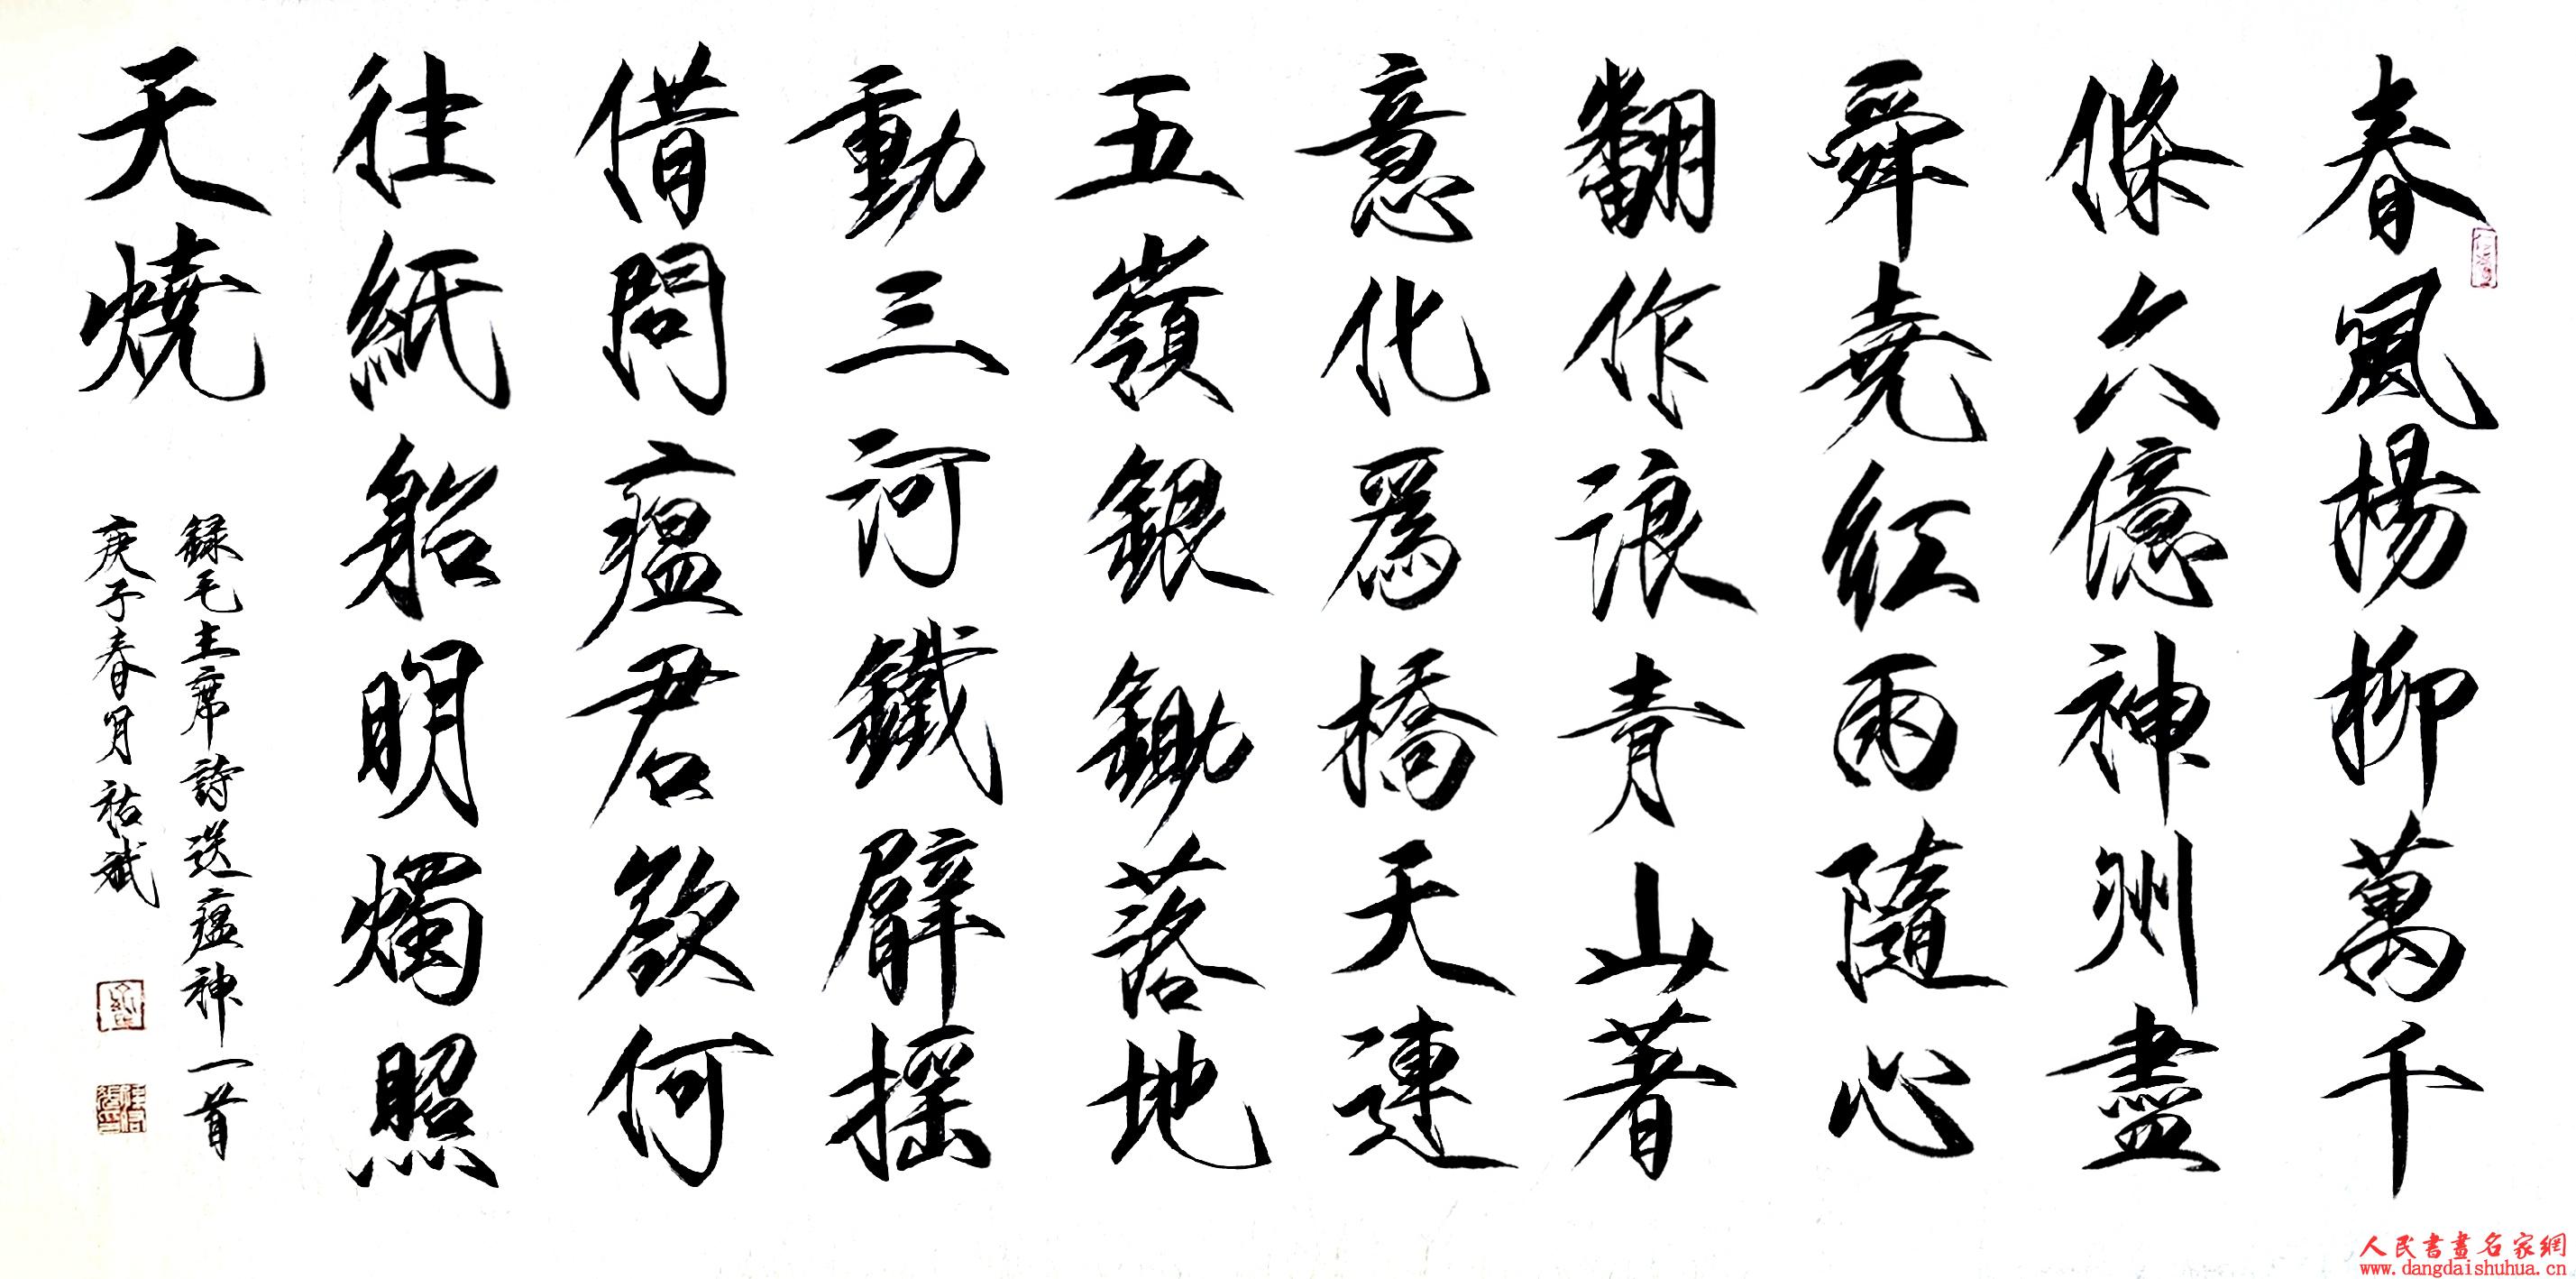 春風楊柳萬千
條六億神州盡
舜堯紅雨隨心
翻作浪青山著
意化爲橋天連
五嶺銀鋤落地
動三河鐵臂摇
借問瘟君欲何
往紙船明燭照
天燒
録毛主席詩送瘟神一首
庚子春月祐斌
人民書畫名家網
www.dangdaishuhua.cn